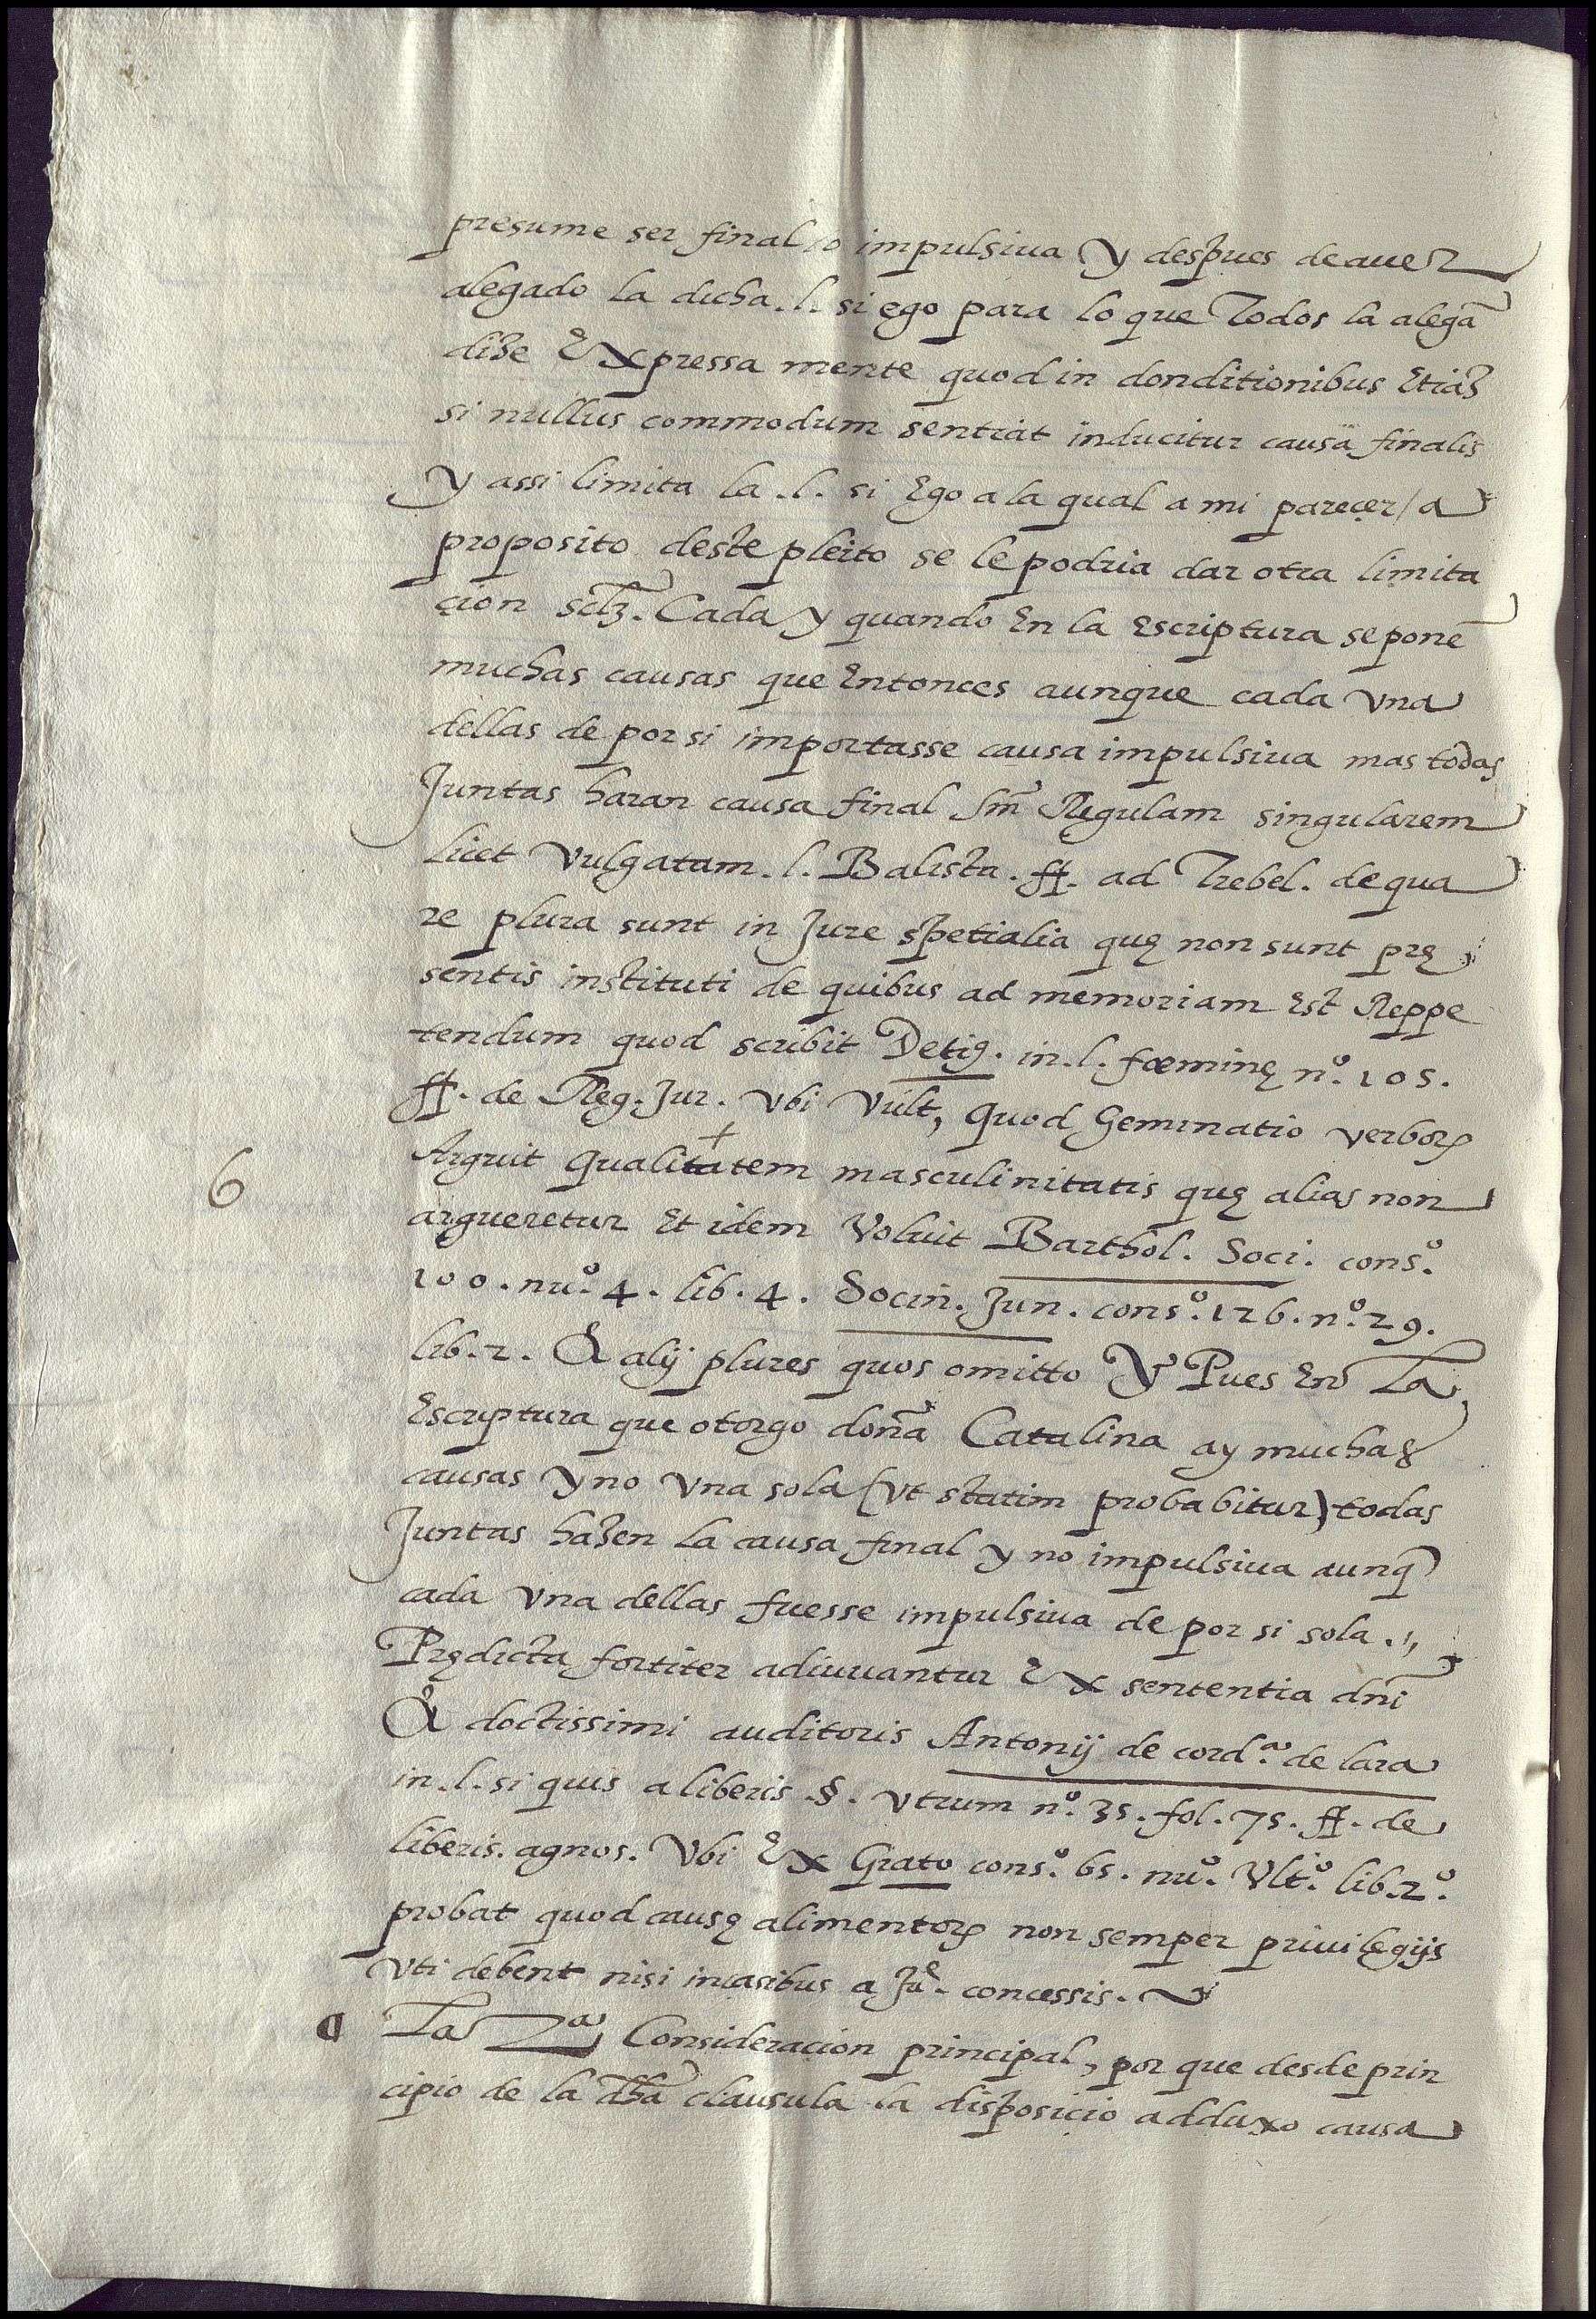 presume ser final / o impulsiua y despues de auer
alegado la dicha .l. si ego para lo que Todos la alegā
dize Expressa mente quod in donditionibus Etiaȝ
si nullus commodum sentiat inducitur causa finalis
y assi limita la .l. si Ego a la qual a mi pareçer / a
proposito deste pleito se le podria dar otra limita
çion sclȝ. Cada y quando En la Escriptura se ponē
muchas causas que Entonces aunque cada vna
dellas de por si importasse causa impulsiua mas todas
Juntas haran causa final sm̄ Regulam singularem
licet vulgatam .l. Balista. ff. ad Trebel. de qua
re plura sunt in Jure spetialia quę non sunt prę
sentis instituti de quibus ad memoriam Est Reppe
tendum quod scribit Detiꝰ. in .l. fœminę nº. 105.
ff. de Reg. Jur. vbi vult, quod Geminatio verboꝝ
6
Arguit qualitatem masculinitatis quę alias non
argueretur Et idem Voluit Barthol. Soci. consº.
100. nuº. 4. lib. 4. Socin. Jun. consº. 126. nº. 29.
lib. 2. & alij plures quos omitto Y Pues En La
Escriptura que otorgo doña Catalina ay muchas
causas y no vna sola (vt statim probabitur) todas
Juntas hazen la causa final y no impulsiua aunq̄
cada vna dellas fuesse impulsiua de por si sola.
Prędicta fortiter adiuuantur Ex sententia dn̄i
& doctissimi auditoris Antonij de cord.ª de lara
in .l. si quis a liberis .§. vtrum nº. 35. fol. 75. ff. de
liberis. agnos. Vbi Ex Grato consº. 65. nuº. Vltº. lib. 2º.
probat quod causę alimentoꝝ non semper priuilegijs
vti debent nisi in casibus a Juᵉ. concessis.
La 2ª Consideraçion principal, por que desde prin
cipio de la dh̄a clausula la disposiçio adduxo causa